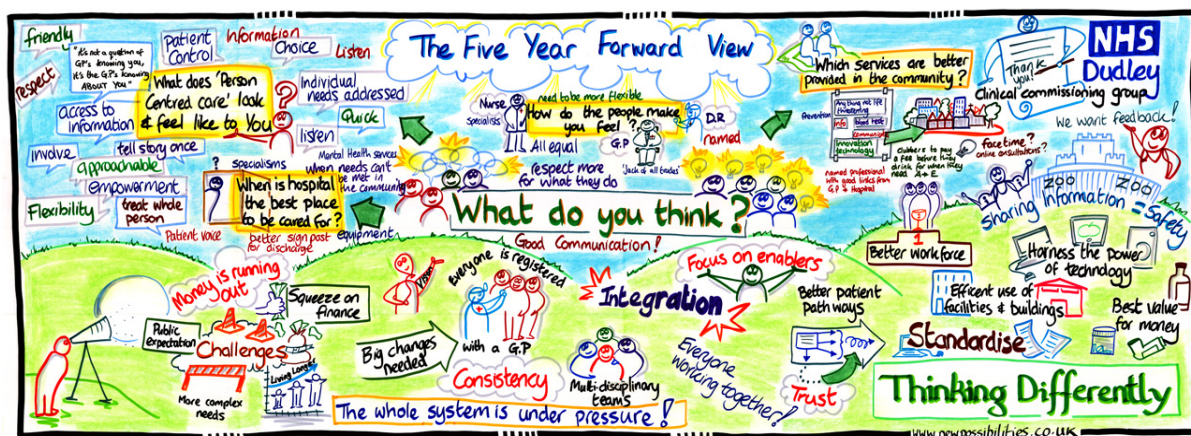 friendly
respect
"it's not a question of
GP's knowing you,
it's the G.P's knowing
ABOUT you"
Patient
Control
Information
Choice
Listen
What does 'Person
Centred care' look
& feel like to You
?
Individual
needs addressed
Quick
listen
access to
information
involve
tell story once
approachable
empowerment
Flexibility
treat whole
person
Patient voice
? specialisms
Mental Health services
when needs can't
be met in
the community
When is hospital
the best place
to be cared for?
better sign post
for discharge
equipment
The Five Year Forward View
Nurse
Specialists
need to be more flexible
How do the people make
you feel?
All equal
G.P
D.R
named
respect more
for what they do
"Jack of all trades"
What do you think?
Good Communication!
Which services are better
provided in the community?
Prevention
Any thing not life
threatening
info
Blood test
community
Innovation
technology
Clubbers to pay
a fee before they
drink for when they
need A+E
face time?
online consultations?
named professional
with good links from
G.P → Hospital
Thank
you!
NHS
Dudley
Clinical commissioning group
we want feedback!
ZOO
ZOO
Sharing Information = Safety
1
Better workforce
Harness the power
of technology
Efficent use of
facilities & buildings
Best value
for money
Standardise
Thinking Differently
www.newpossibilities.co.uk
Money is running
out
Squeeze on
finance
Public
expectation
Challenges
Living Longer
More complex
needs
Vision
Everyone is registered
with a G.P
Big changes
needed
Consistency
Multi-disciplinary
teams
The whole system is under pressure!
Integration
Focus on enablers
Everyone
working together!
Better patient
path ways
Trust